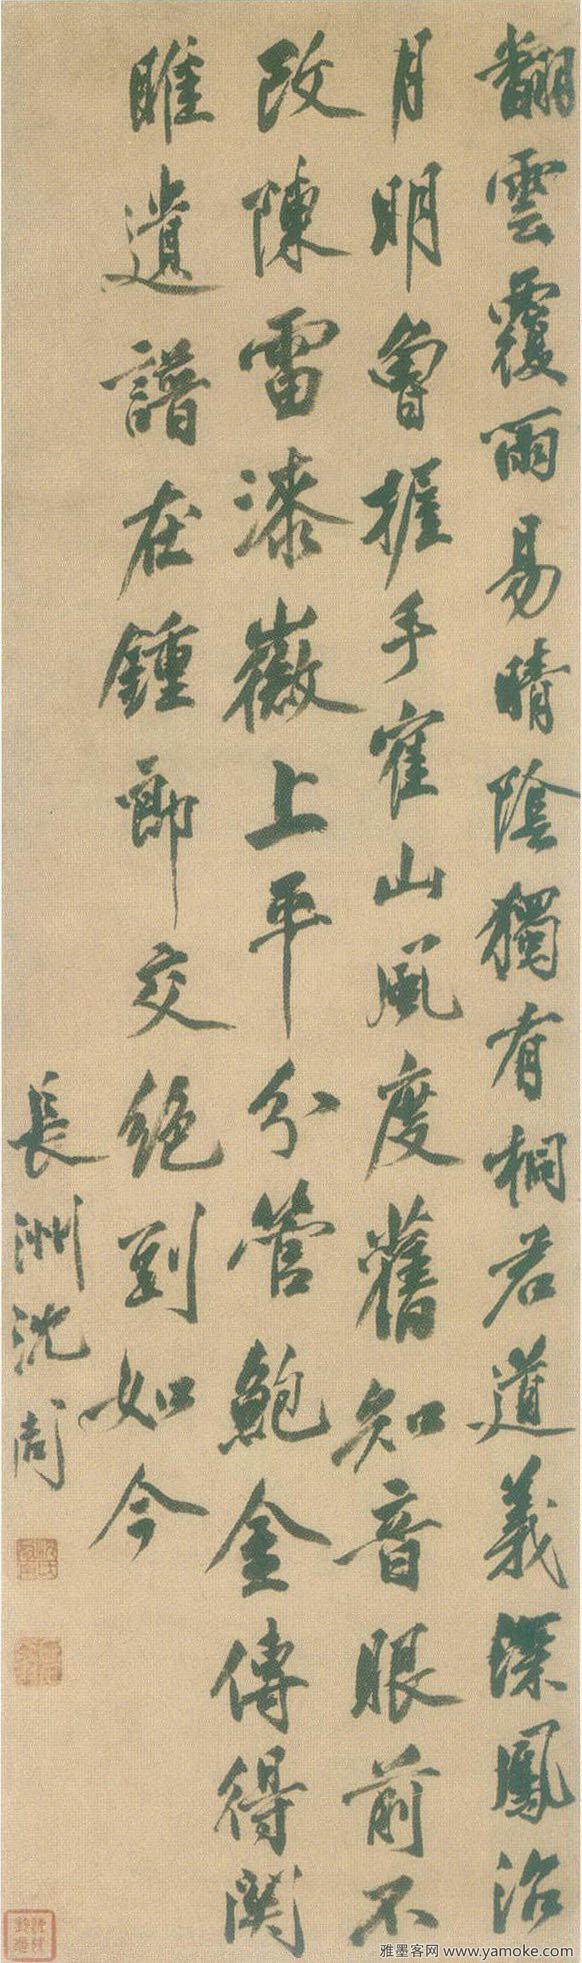 翻雲覆雨易晴陰獨有桐君道義深鳳沼
月明曾握手雀山風度舊知音眼前不
改陳雷漆徽上平分管鮑金傳得関
雎遺譜在鍾郎交絶到如今
長洲沈周
雅墨客网 www.yamoke.com